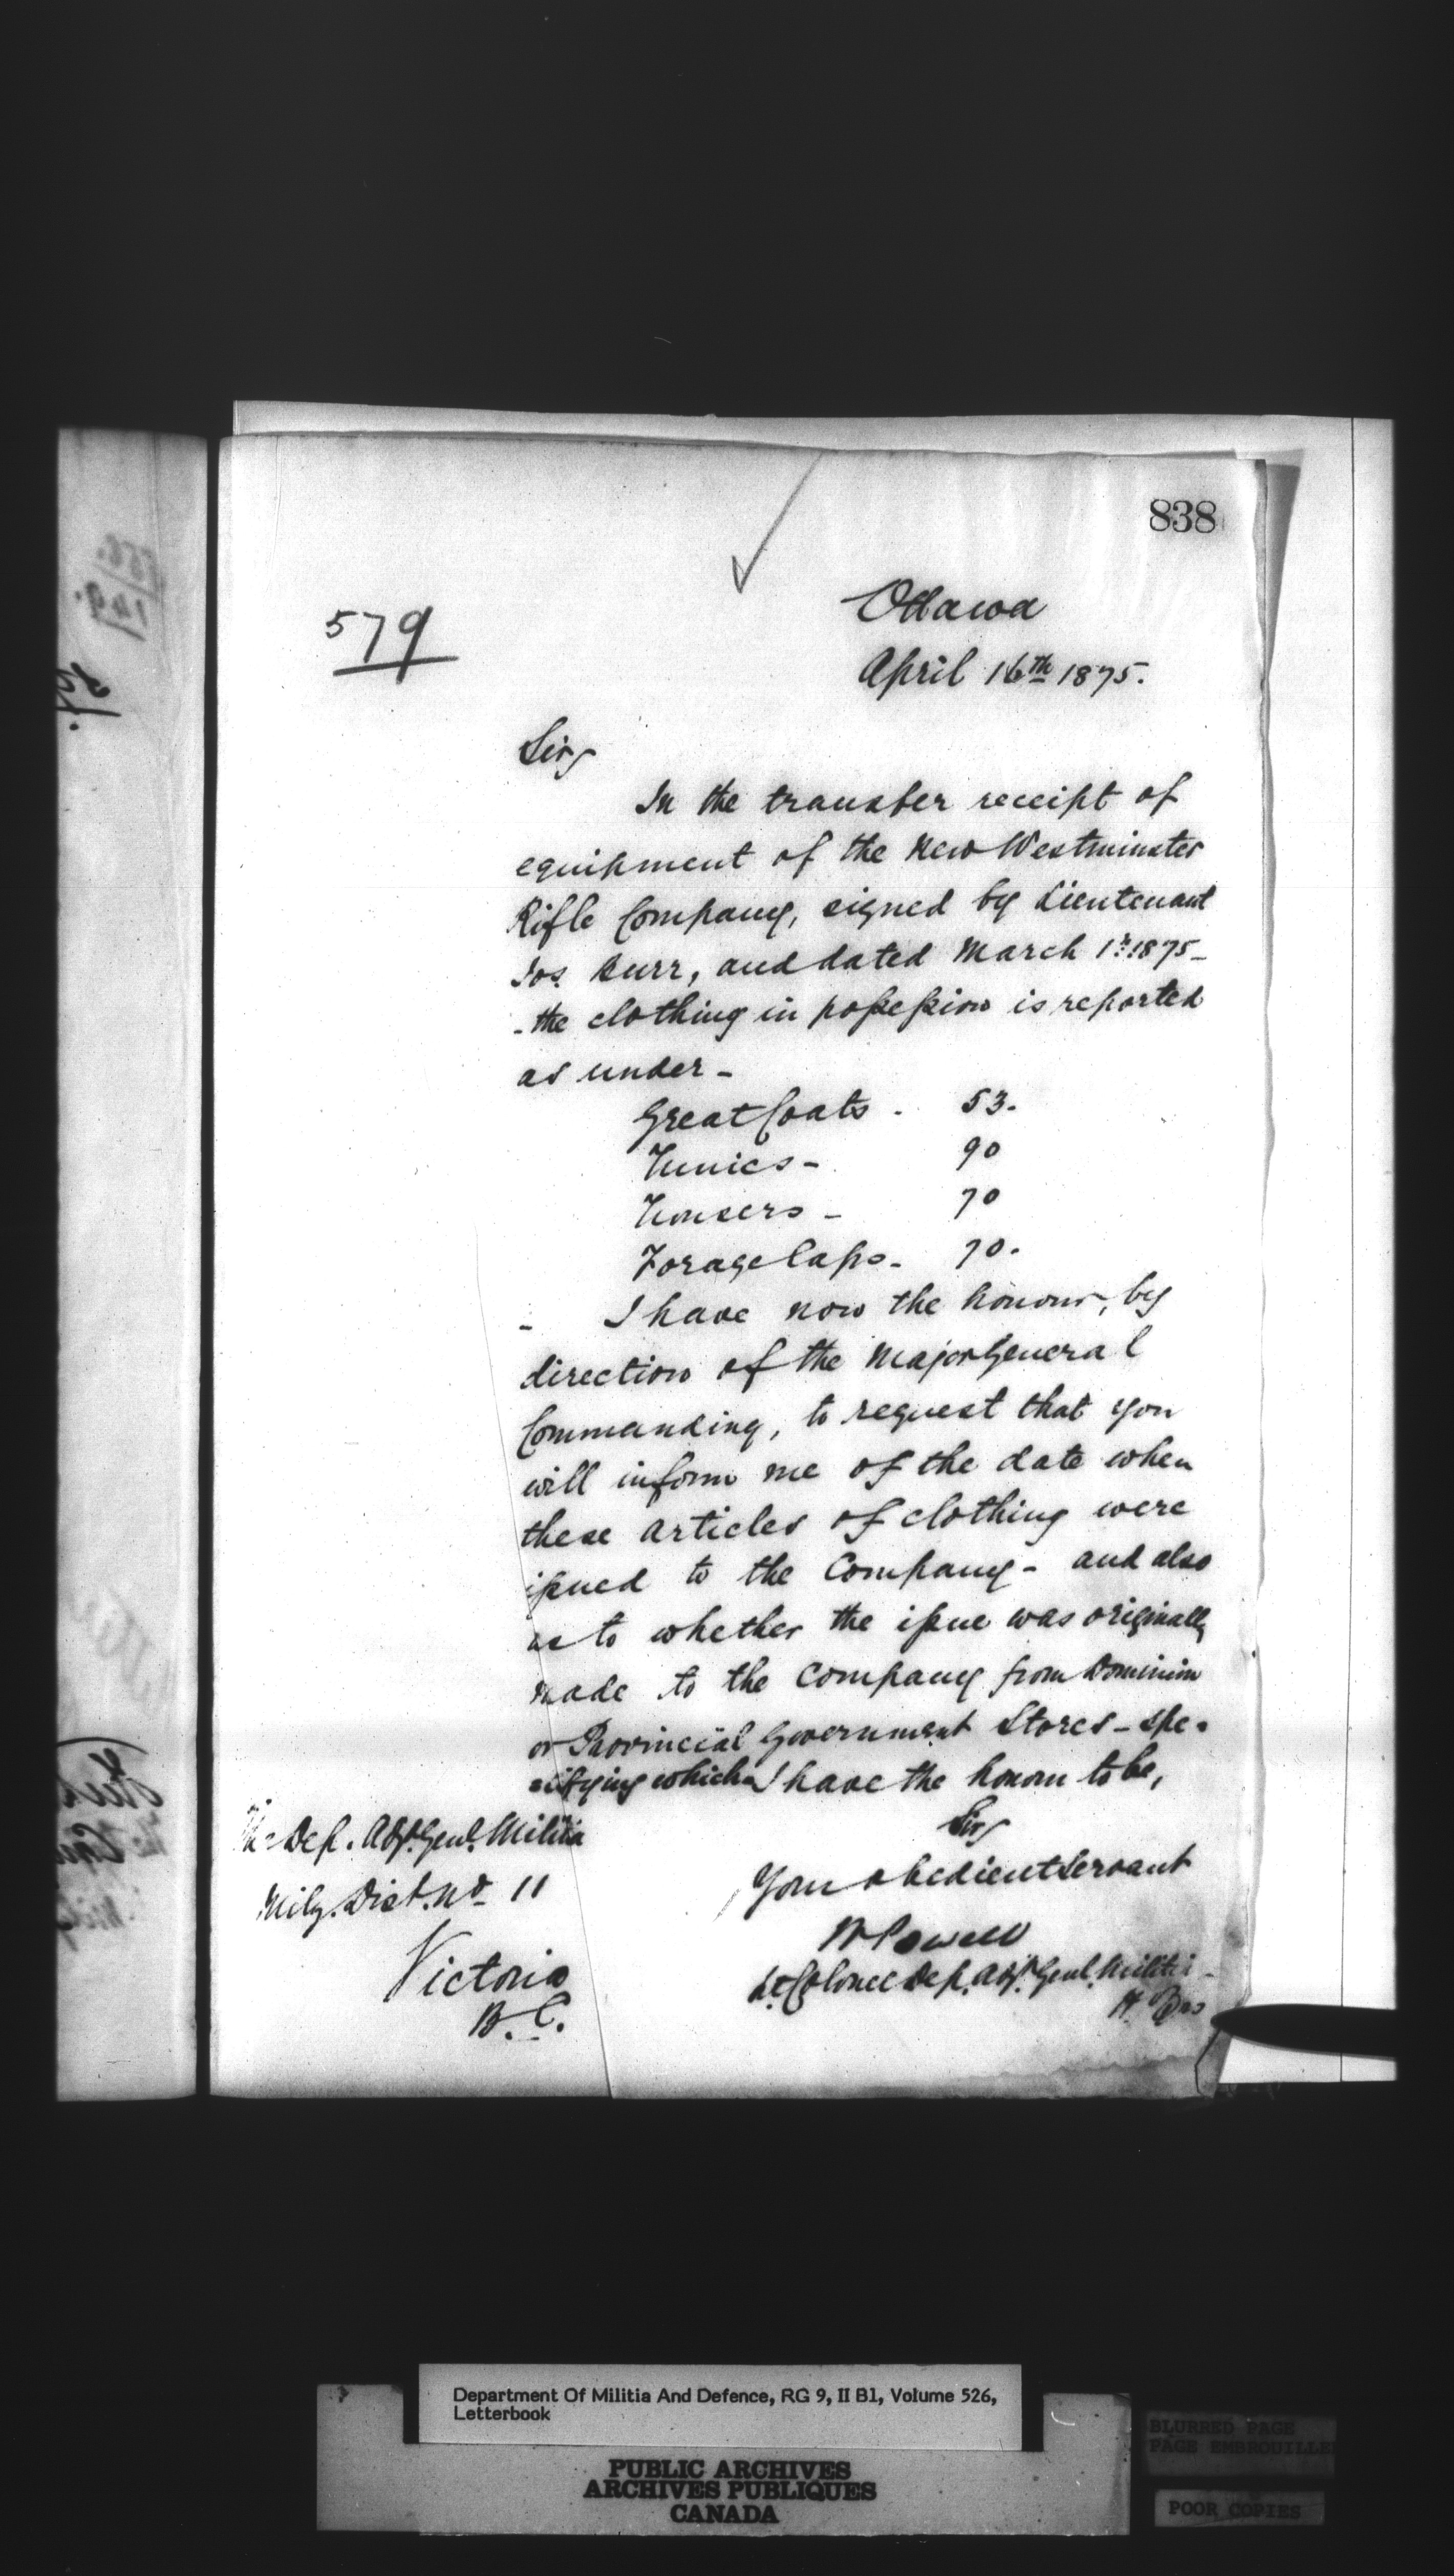 838
579
Ottawa
April 16th 1875.
Sir,
In the transfer receipt of
equipment of the New Westminster
Rifle Company, signed by Lieutenant
Jos. Burr, and dated March 1st 1875 -
- the clothing in possession is reported
as under -
Great Coats . 53.
Tunics - 90
Trousers - 70
Forage Caps - 70.
- I have now the honour, by
direction of the Major General
Commanding, to request that you
will inform me of the date when
these articles of clothing were
issued to the Company - and also
as to whether the issue was originally
made to the Company from Dominion
or Provincial Government Stores - spe-
cifying which - I have the honour to be,
Sir,
Your obedient Servant
W Powell
Lt Colonel Dep. Adjt. Genl. Militia
The Dep. Adjt. Genl. Militia
Mily. Dist. No 11
Victoria
B.C.
Department Of Militia And Defence, RG 9, II B1, Volume 526,
Letterbook
PUBLIC ARCHIVES
ARCHIVES PUBLIQUES
CANADA
BLURRED PAGE
PAGE EMBROUILLEE
POOR COPIES